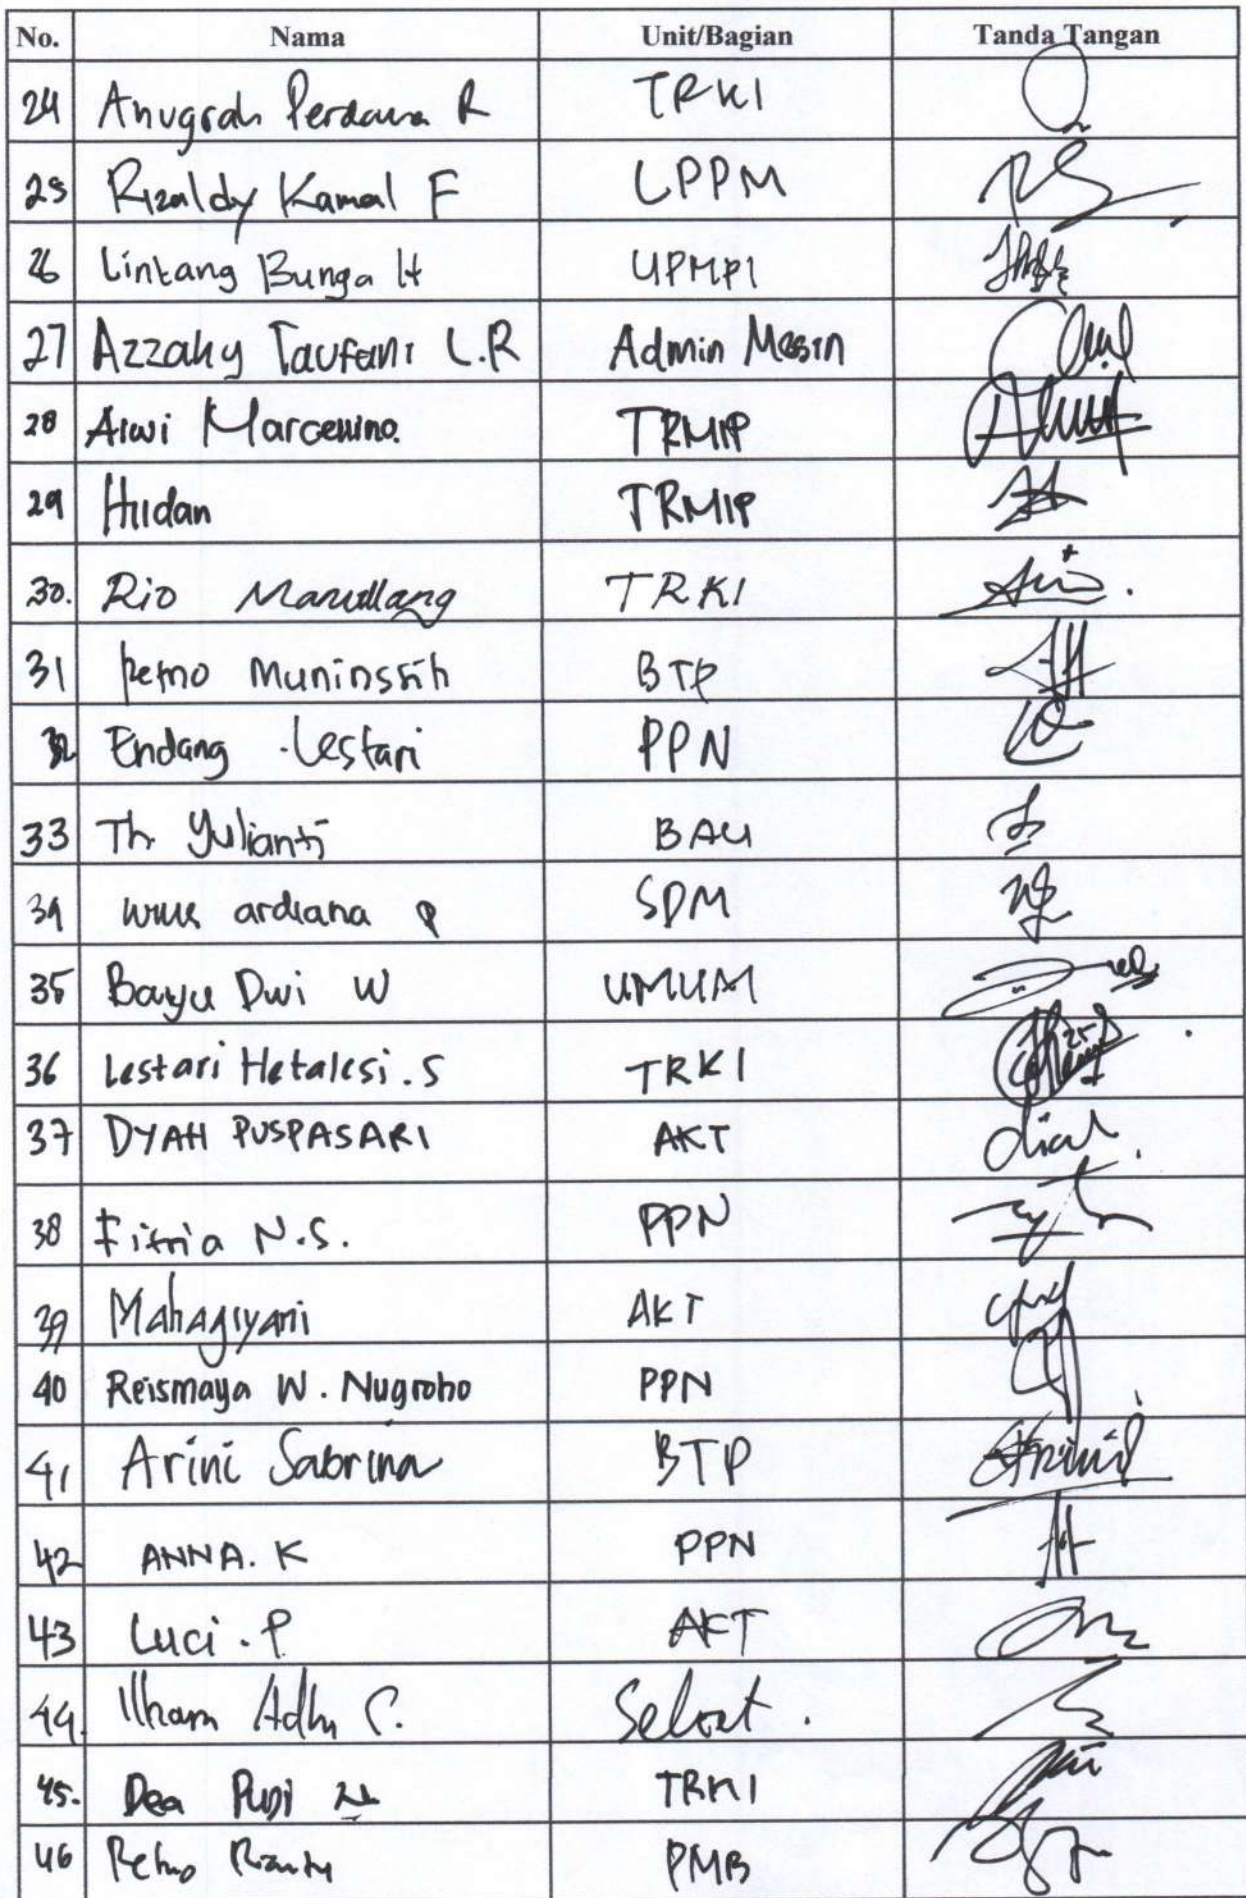 No. Nama Unit/Bagian Tanda Tangan
24 Anugrah Perdana R TRKI
25 Rizaldy Kamal F LPPM
26 Lintang Bunga H UPMPI
27 Azzahy Taufani L.R Admin Mesin
28 Alwi Marcellino. TRMIP
29 Huidan TRMIP
30. Rio Manullang TRKI
31 Retno Muninssih BTP
32 Endang Lestari PPN
33 Th Yulianti BAU
34 ardiana P SDM
35 Bayu Dwi W UMUM
36 Lestari Hetalesi. S TRKI
37 DYAH PUSPASARI AKT
38 Fitria N.S. PPN
39 Mahagiyani AKT
40 Reismaya W. Nugroho PPN
41 Arini Sabrina BTP
42 ANNA. K PPN
43 Luci. P AKT
44. Ilham Adhy
45. Dea Puji TRKI
46 Retno PMB